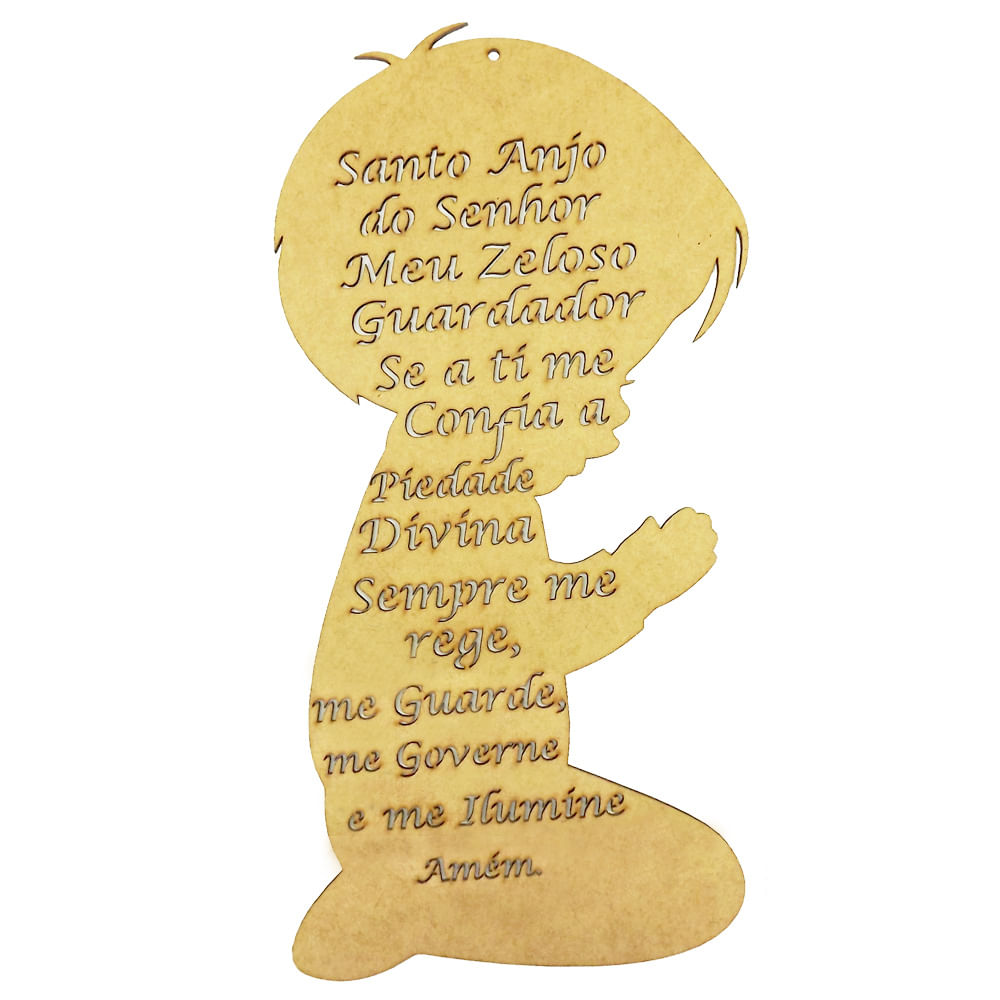 Santo Anjo
do Senhor
Meu Zeloso
Guardador
Se a ti me
Confia a
Piedade
Divina
Sempre me
rege,
me Guarde,
me Governe
e me Ilumine
Amém.